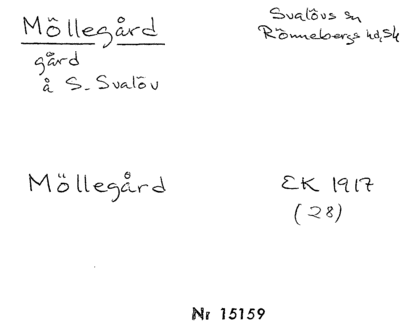 Möllegård
gård
å S. Svalöv
Svalövs sn
Rönnebergs hd, Sk
Möllegård
EK 1917
(28)
Nr 15159